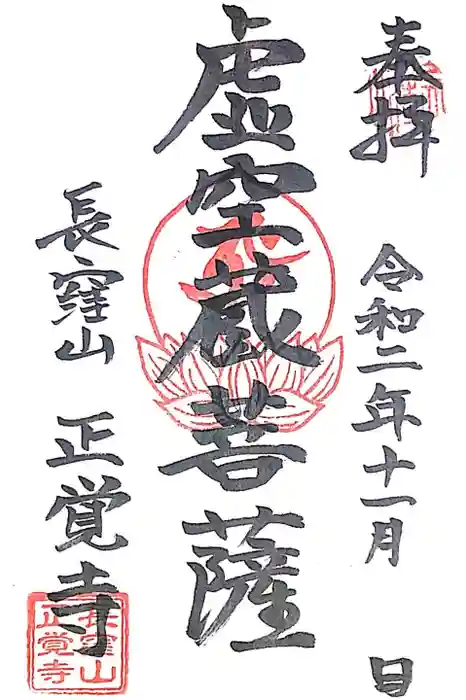 奉拝
令和二年十一月　日
虚空蔵菩薩
長窪山　正覚寺
長窪山
正覚寺